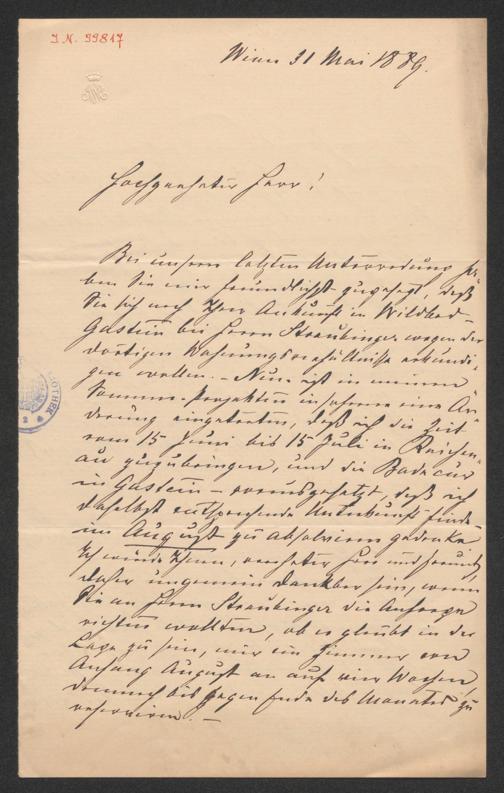 I.N. 99817
Wien 31 Mai 1889.
Hochgeehrter Herr!
Bei unserer letzten Unterredung ha-
ben Sie mir freundlichst zugesagt, daß
Sie sich nach Ihrer Ankunft in Wildbad-
Gastein bei Herrn Straubinger wegen der
dortigen Wohnungsverhältnisse erkundi-
gen wollen. – Nun ist in meinen
Sommer-Projekten insoferne eine Än-
derung eingetreten, daß ich die Zeit
vom 15 Juni bis 15 Juli in Reichen-
au zuzubringen, und die Badecur
in Gastein – vorausgesetzt, daß ich
daselbst entsprechende Unterkunft finde –
im August zu absolviren gedenke.
Ich würde Ihnen, verehrter Herr und Freund,
daher ungemein dankbar sein, wenn
Sie an Herrn Straubinger die Anfrage
richten wollten, ob er glaubt in der
Lage zu sein, mir ein Zimmer von
Anfang August an auf vier Wochen,
demnach bis gegen Ende des Monates zu
reserviren. –
OTHEK